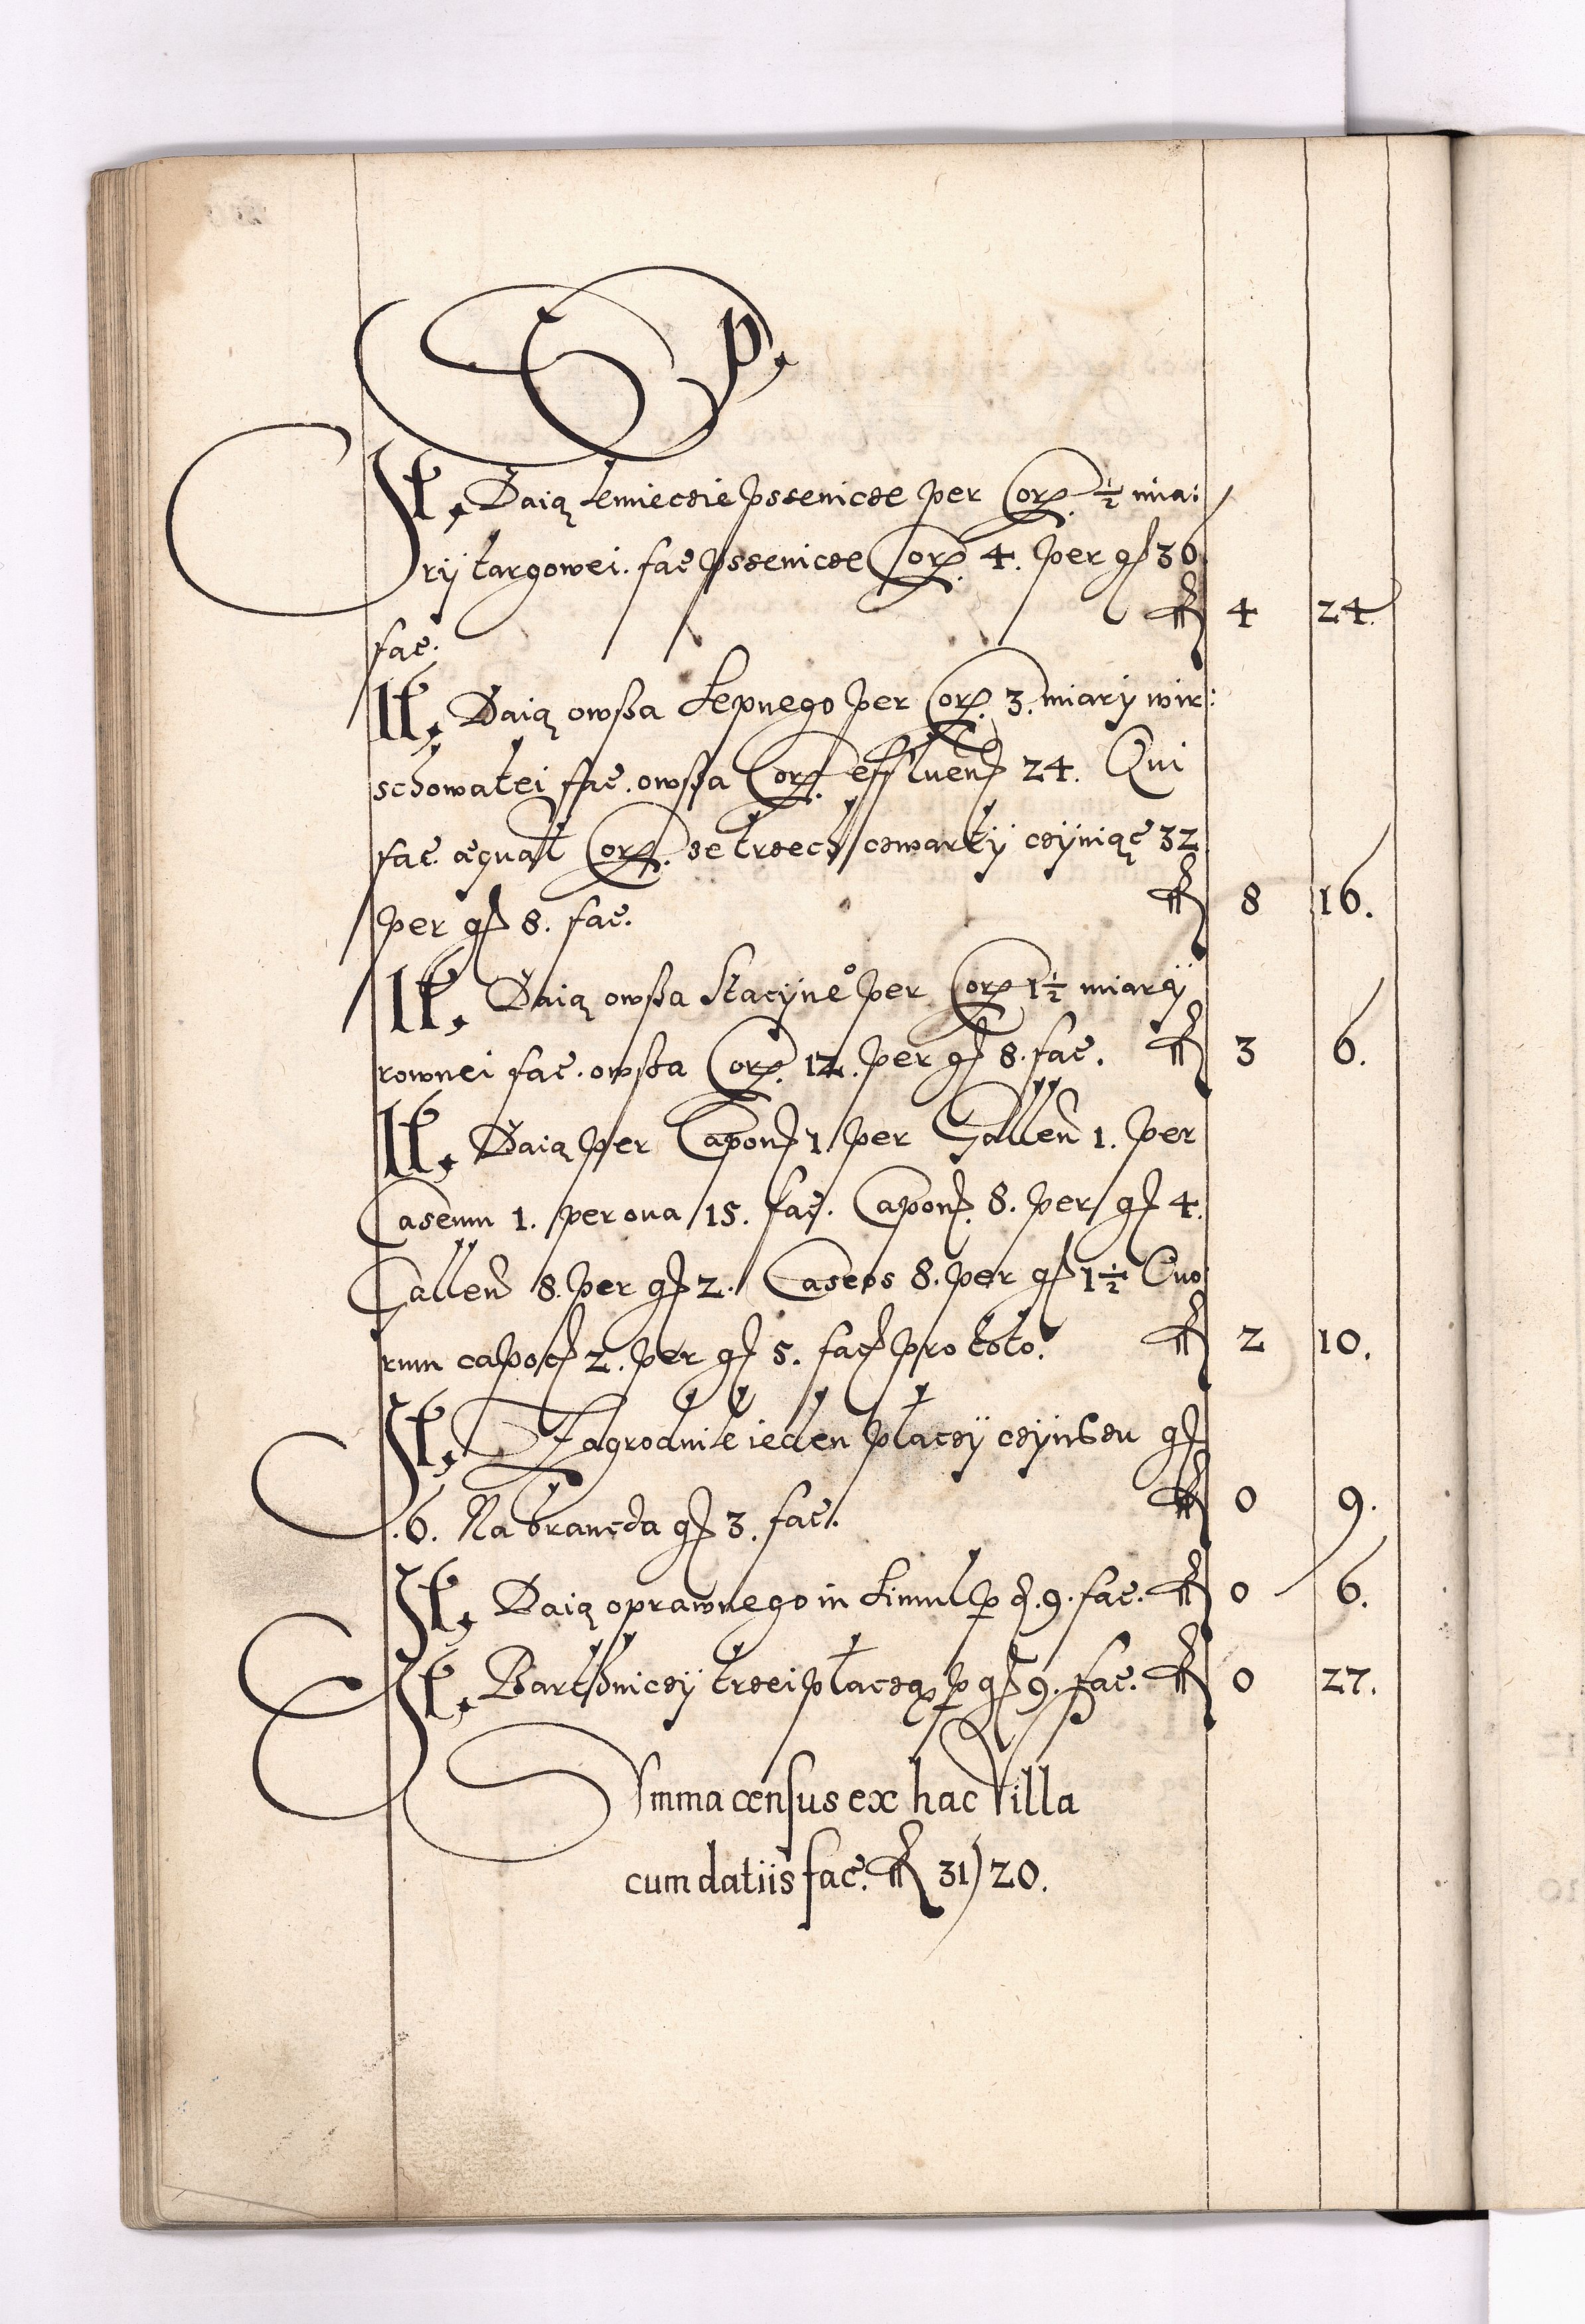 p.
It. Daią kmieczie pssenicze per Cor. ½ mia:
ry targowei. fac pssenicze Cor. 4. per gr 36
fac. 4 24.
It. Daią owßa sepnego per Cor. 3. miary wir:
schowatei fac. owßa Cor. effluen 24. Qui
fac æquat Cor. se trzech czwarty czyniąc 32
per gr 8. fac. 8 16.
It. Daią owßa Stacyneo per Cor 1½ miary
rownei fac. owßa Cor. 12. per gr 8. fac. 3 6.
It. Daią per Capon 1. per Gallen 1. per
Caseum 1. per oua 15. fac. Capon. 8. per gr 4.
Gallen 8. per gr 2. Caseos 8. per gr 1½ Ouo
rum capo 2. per gr 5. fac pro toto. 2 10.
It. Zagrodnik ieden płaczy czynßu gr
.6. Na 3. fac. 0 9.
It. Daią oprawnego in simul p d. 9. fac. 0 6.
It. Barthniczy trzei płaczą p gr 9. fac. 0 27.
Summa census ex hac Villa
cum datiis fac. 31) 20.